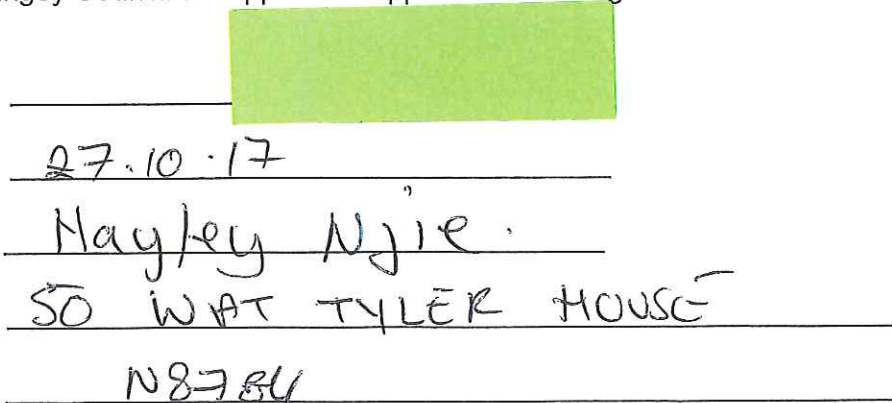 27.10.17
Hayley Njie.
50 WAT TYLER HOUSE